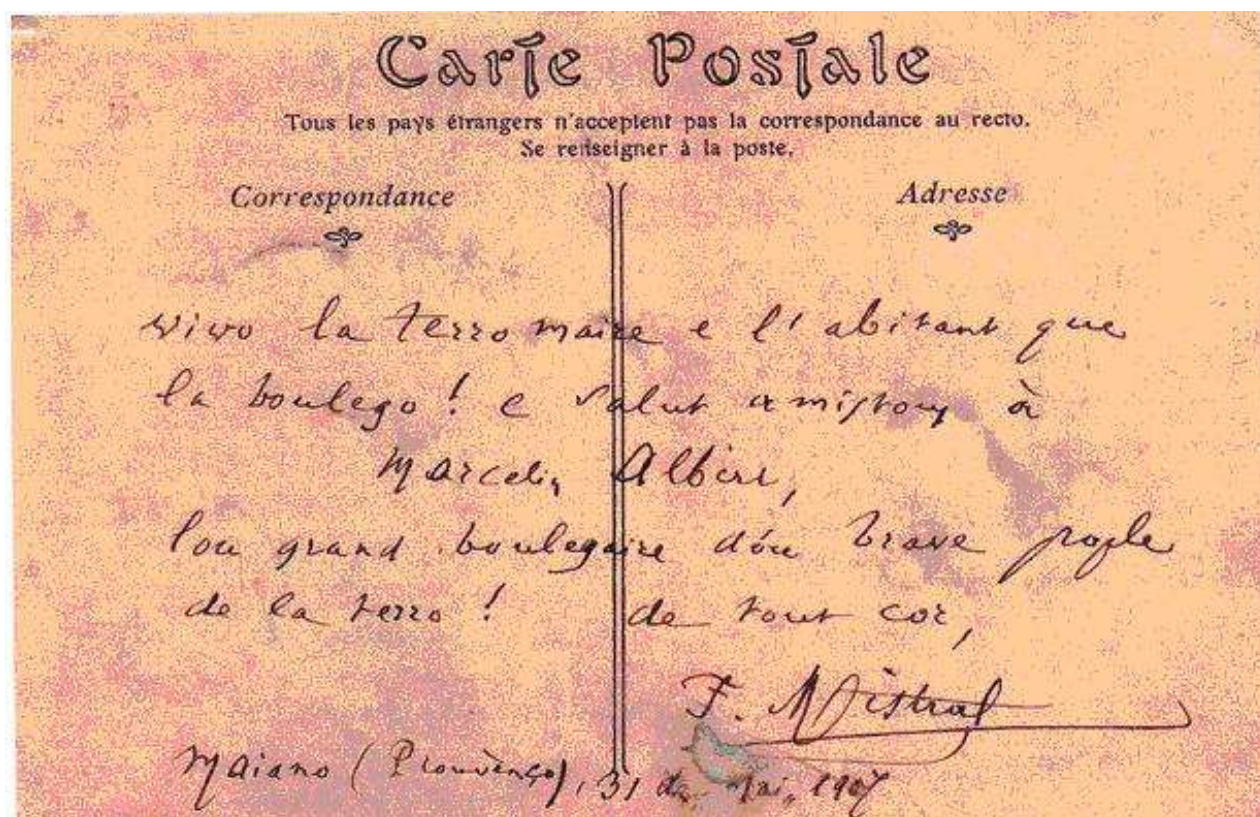 Carte Postale
Tous les pays étrangers n'acceptent pas la correspondance au recto.
Se renseigner à la poste.
Correspondance
Adresse
vivo la terro maire e l'abitant que
la boulego ! e salut amistous à
Marcelin Albert,
lou grand boulegaire dóu brave pople
de la terro ! de tout cor,
F. Mistral
Maiano (Prouvènço), 31 de Mai, 1907